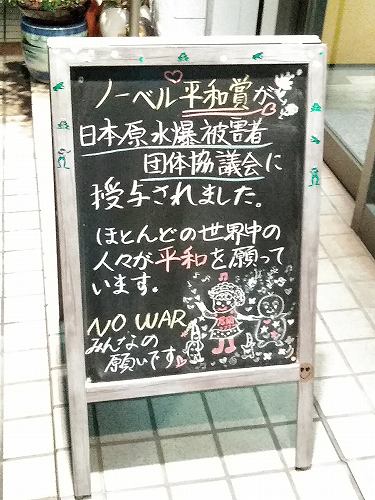 ノーベル平和賞が
日本原水爆被害者
団体協議会に
授与されました。
ほとんどの世界中の
人々が平和を願って
います。
NO WAR
みんなの
願いです